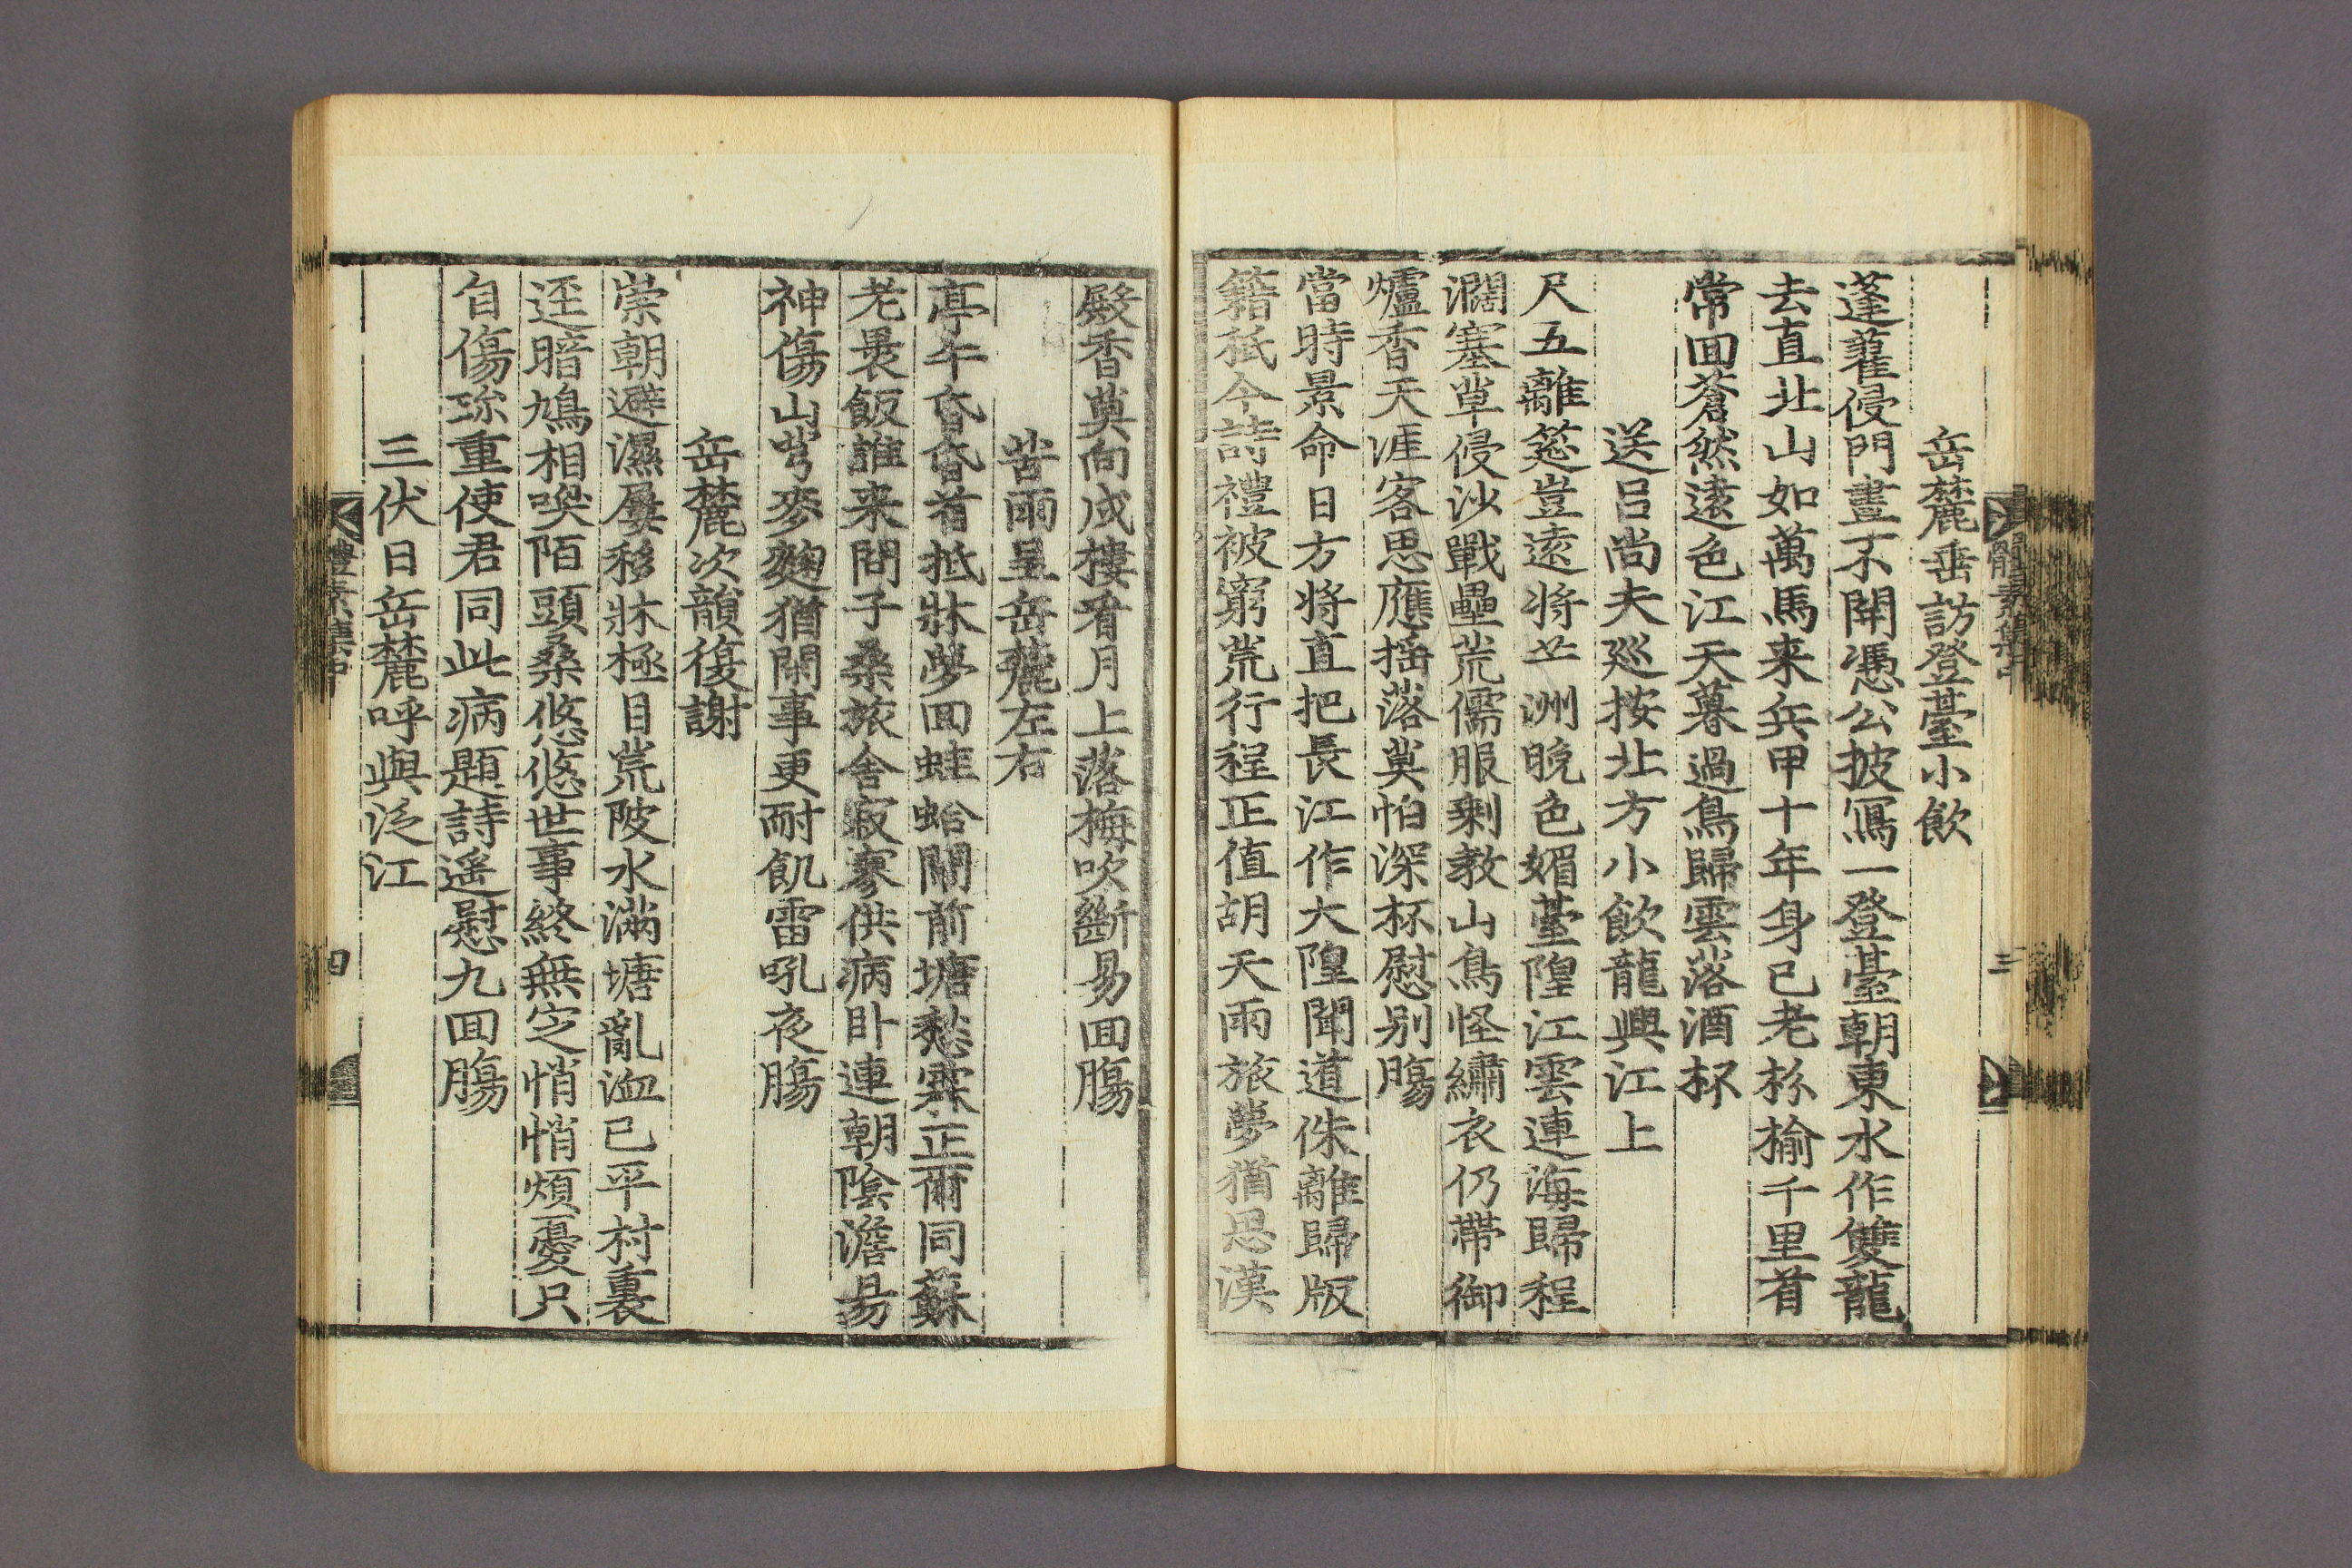 體素集中
三
岳麓垂訪登臺小飮
蓬藋侵門晝不開憑公披寫一登臺朝東水作雙龍
去直北山如萬馬来兵甲十年身已老枌榆千里首
常回蒼然遠色江天暮過鳥歸雲落酒杯
送呂尙夫巡按北方小飮龍興江上
尺五離筵豈遠將芷洲晩色媚臺隍江雲連海歸程
濶塞草侵沙戰壘荒儒服剩敎山鳥怪繡衣仍帶御
爐香天涯客思應搖落莫怕深杯慰别膓
當時景命日方將直把長江作大隍聞道侏離歸版
籍秖今詩禮被窮荒行程正值胡天雨旅夢猶思漢
殿香莫向戍樓看月上落梅吹斷易回膓
苦雨呈岳麓左右
亭午昏昏首抵牀夢回蛙蛤閙前塘愁霖正爾同蘇
老裹飯誰来問子桑旅舍寂寥供病卧連朝陰澹易
神傷山芎麥麴猶閑事更耐飢雷吼夜膓
岳麓次韻復謝
崇朝避濕屢移牀極目荒陂水滿塘亂洫已平村裏
逕暗鳩相喚陌頭桑悠悠世事終無㝎悄悄煩憂只
自傷珎重使君同此病題詩遥慰九回膓
三伏日岳麓呼與泛江
體素集中
四